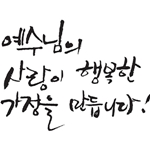 예수님의
사랑이 행복한
가정을 만듭니다!